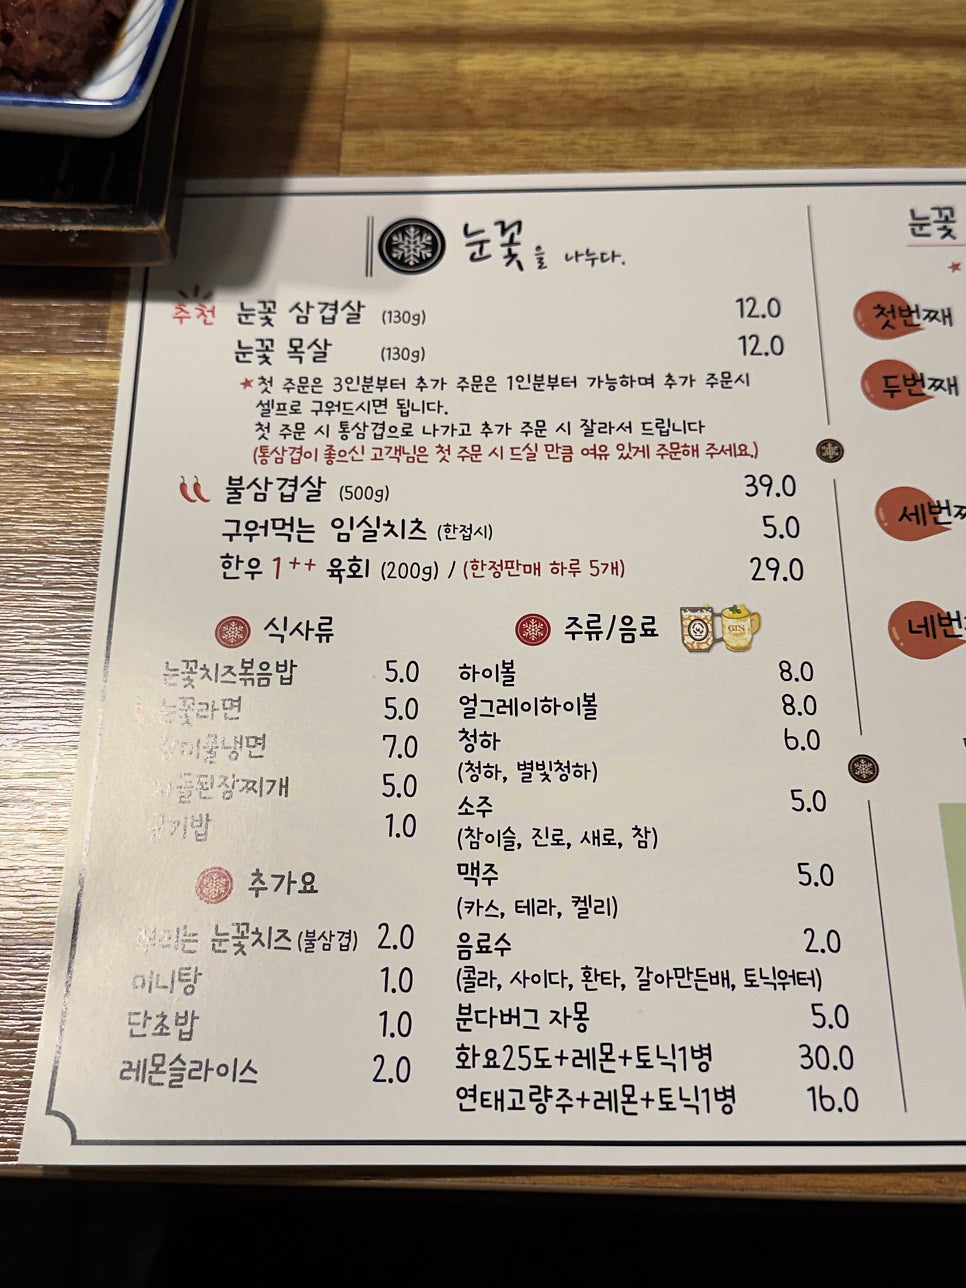 눈꽃을 나누다.
추천 눈꽃 삼겹살 (130g) 12.0
눈꽃 목살 (130g) 12.0
★첫 주문은 3인분부터 추가 주문은 1인분부터 가능하며 추가 주문시
셀프로 구워드시면 됩니다.
첫 주문 시 통삼겹으로 나가고 추가 주문 시 잘라서 드립니다
(통삼겹이 좋으신 고객님은 첫 주문 시 드실 만큼 여유 있게 주문해 주세요.)
불삼겹살 (500g) 39.0
구워먹는 임실치즈 (한접시) 5.0
한우 1++ 육회 (200g) / (한정판매 하루 5개) 29.0
식사류
눈꽃치즈볶음밥 5.0
눈꽃라면 5.0
물냉면 7.0
된장찌개 5.0
공기밥 1.0
추가요
뿌리는 눈꽃치즈 (불삼겹) 2.0
미니탕 1.0
단초밥 1.0
레몬슬라이스 2.0
주류/음료
GIN
하이볼 8.0
얼그레이하이볼 8.0
청하 6.0
(청하, 별빛청하)
소주 5.0
(참이슬, 진로, 새로, 참)
맥주 5.0
(카스, 테라, 켈리)
음료수 2.0
(콜라, 사이다, 환타, 갈아만든배, 토닉워터)
분다버그 자몽 5.0
화요25도+레몬+토닉1병 30.0
연태고량주+레몬+토닉1병 16.0
눈꽃
★
첫번째
두번째
세번째
네번